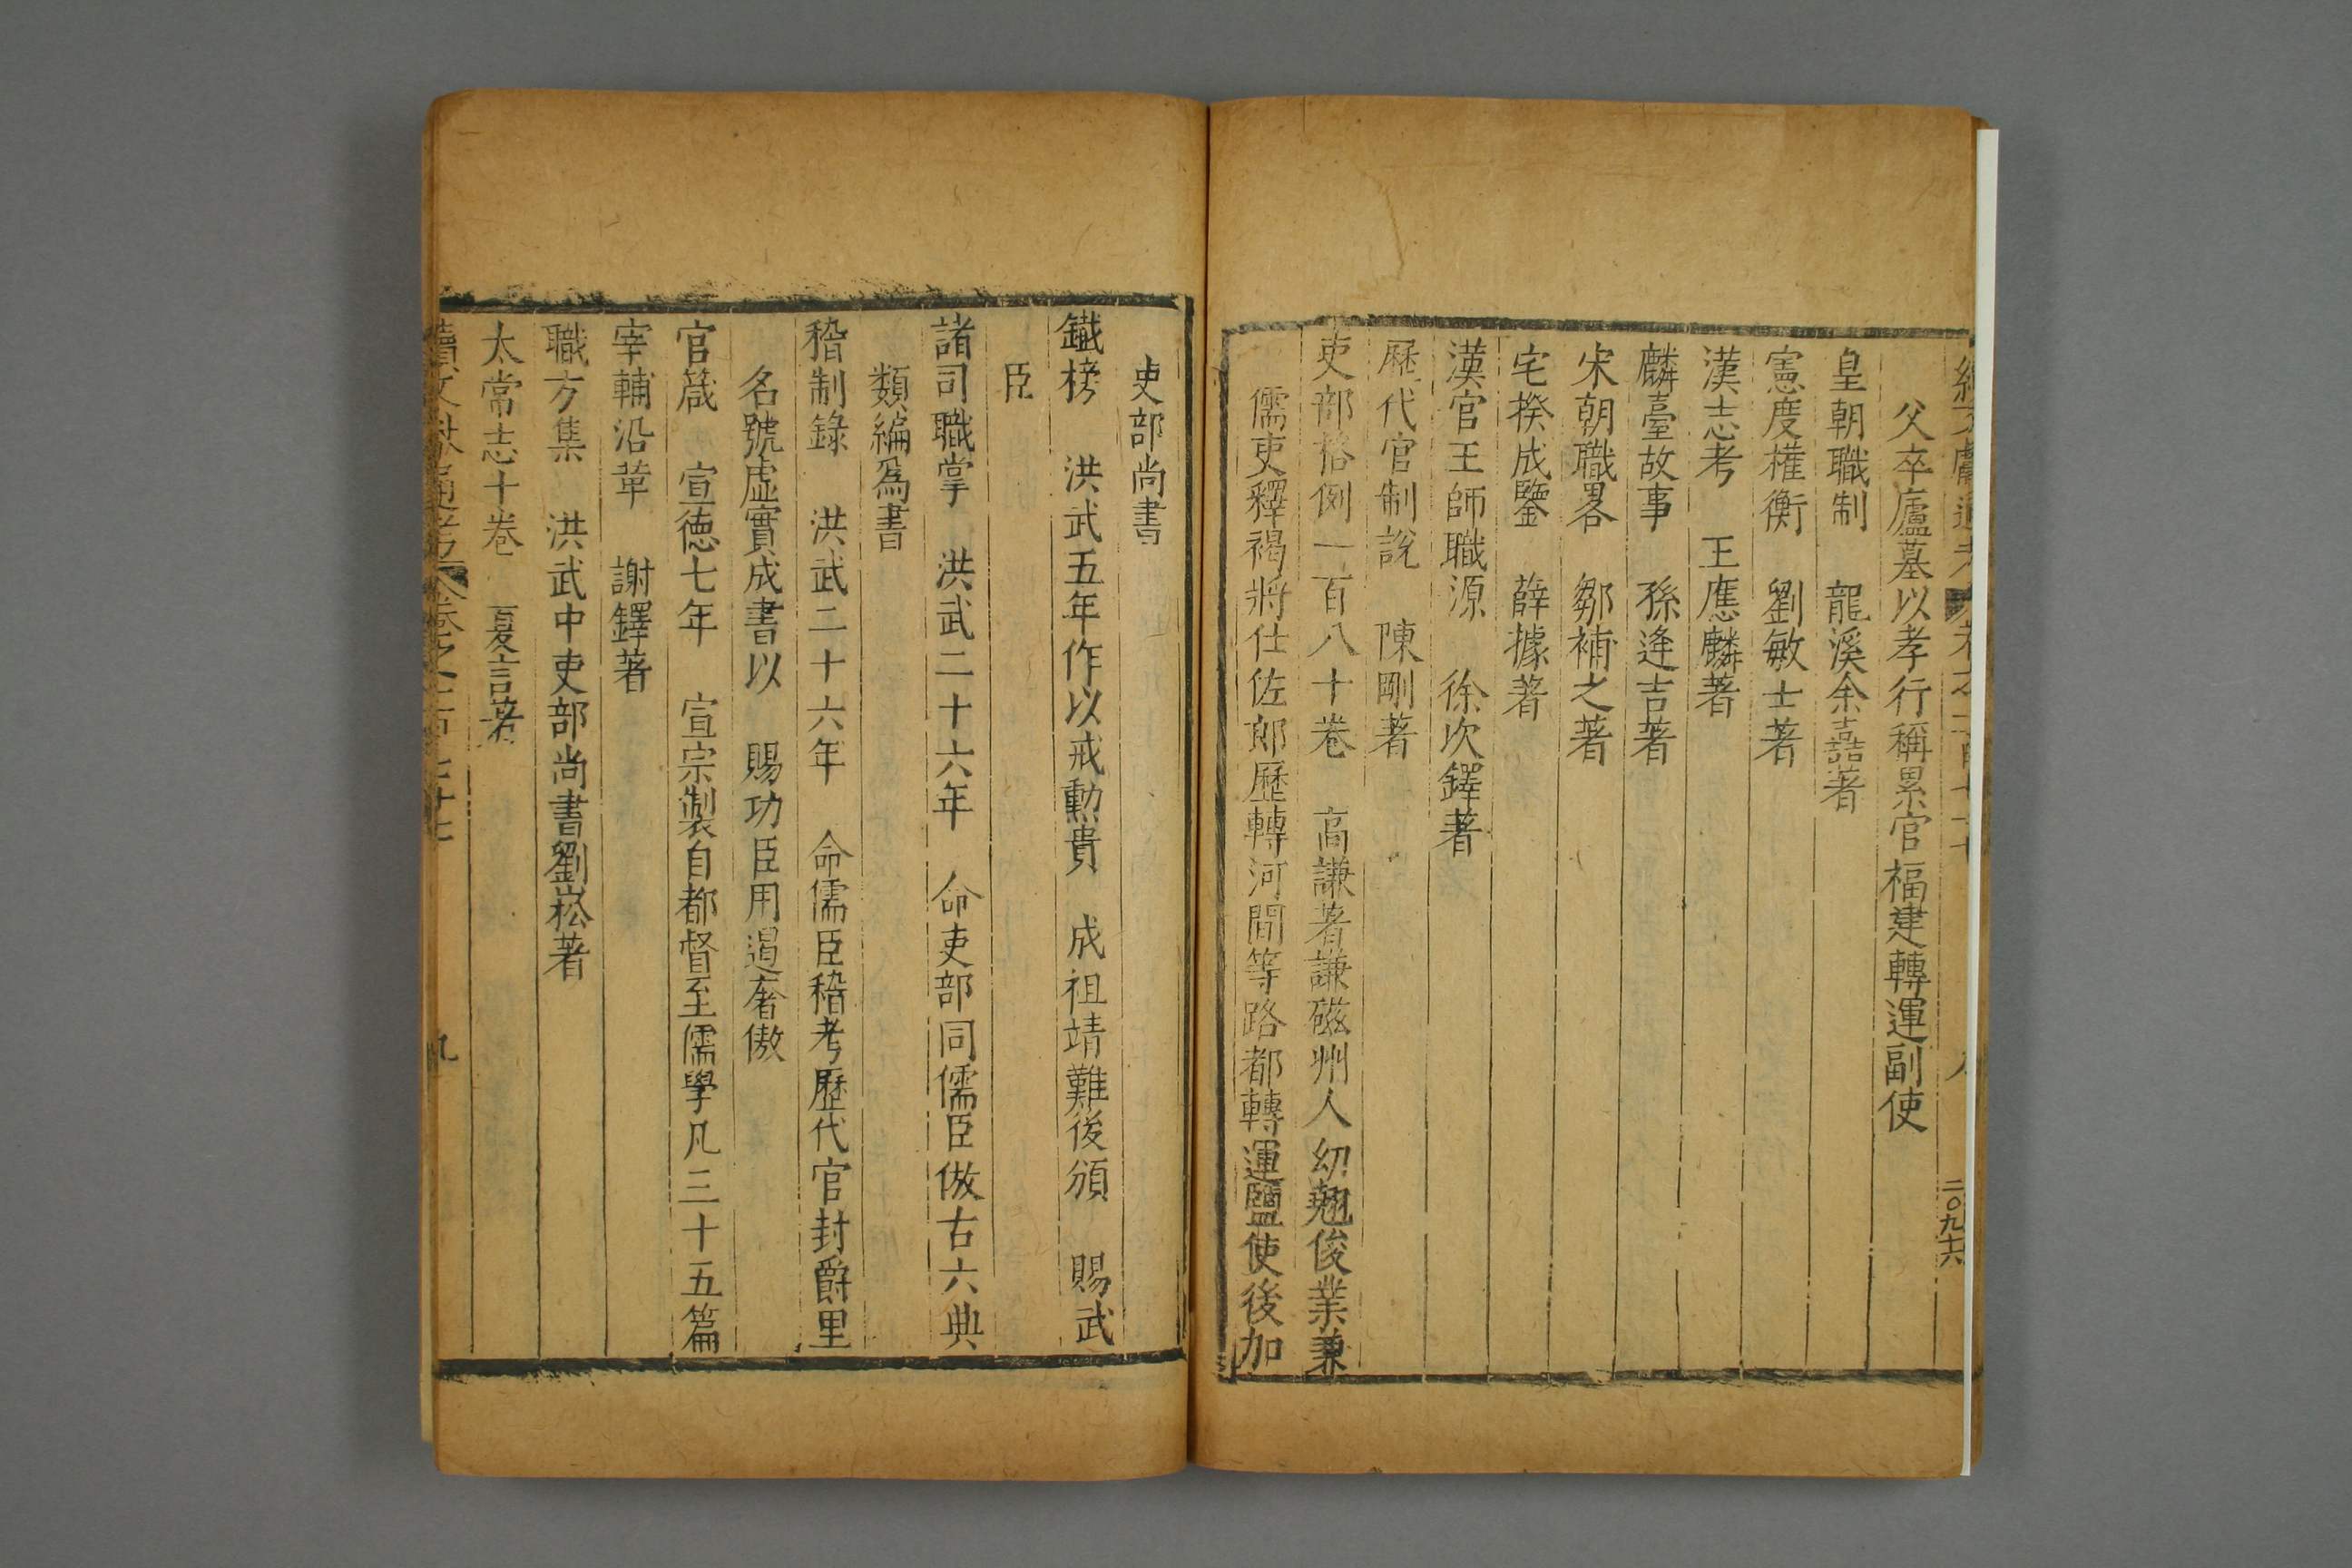 父卒廬墓以孝行稱累官福建轉運副使
皇朝職制　龍溪余嚞著
憲度權衡　劉敏士著
漢志考　王應麟著
麟臺故事　孫逢吉著
宋朝職畧　鄒補之著
宅揆成鑒　薛據著
漢官王師職源　徐次鐸著
歷代官制說　陳剛著
吏部格例一百八十卷　高謙著謙磁州人幼翹俊業兼
儒吏釋褐將仕佐郎歷轉河間等路都轉運鹽使後加
二〇九六
吏部尚書
鐵榜　洪武五年作以戒勳貴　成祖靖難後頒　賜武
臣
諸司職掌　洪武二十六年　命吏部同儒臣倣古六典
類編爲書
稽制錄　洪武二十六年　命儒臣稽考歷代官封爵里
名號虛實成書以　賜功臣用遏奢傲
官箴　宣德七年　宣宗製自都督至儒學凡三十五篇
宰輔沿革　謝鐸著
職方集　洪武中吏部尚書劉崧著
太常志十卷　夏言著
續文獻通考　卷之一百七十七　九